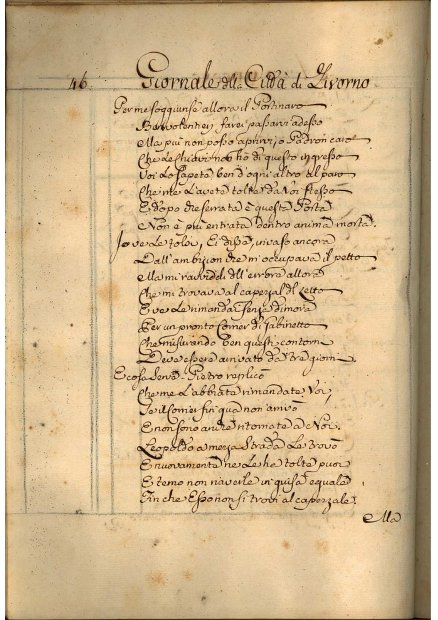 46. Giornale della Città di Livorno
Per me soggiunse allora il Portinaro
Benvolentieri farei passarvi adesso
Ma più non posso aprirvi, o Padron caro
Che le chiavi non ho di questo ingresso
Voi lo sapete ben d'ogni altro al paro
Che me l'avete tolte da Voi stesso
E dopo che serrata è questa Porta
Non è più entrata dentro anima morta.
Io ve le tolsi, Ei disse, invaso ancora
Dall'ambizion che m'occupava il petto
Ma mi ravviddi dell'errore allora
Che mi trovava al capezzal di letto
E ve le rimandai senza dimora
Per un pronto Corrier di Gabinetto
Che misurando ben questi contorni
Deve essere arrivato da tre giorni
E cosa serve Pietro replicò
Che me l'abbiate rimandate Voi,
Se il Corrier fin qua non arrivò
E non sono anche ritornate a Noi.
Leopoldo a mezza Strada le trovò
E nuovamente ne le ha tolte puoi
E temo non haverle in guisa eguale
Finche Esso non si trovi al capezzale.
Ma